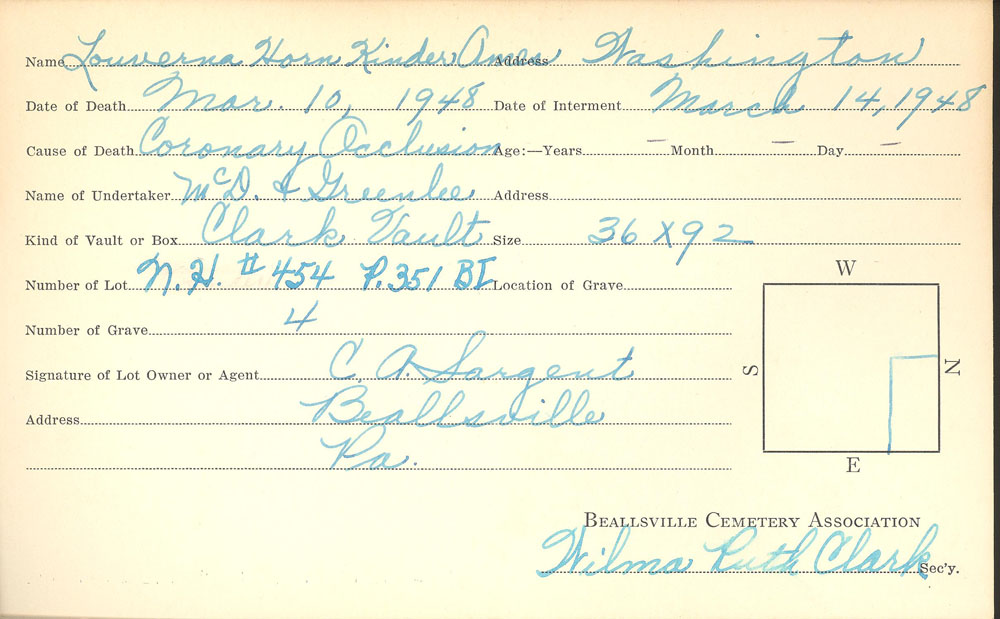 Name Louverna Horn Kinder Ames Address Washington
Date of Death Mar. 10, 1948 Date of Interment March 14, 1948
Cause of Death Coronary Occlusion Age:—Years — Month — Day —
Name of Undertaker McD. & Greenlee Address
Kind of Vault or Box Clark Vault Size 36 X 92
Number of Lot N.H. # 454 P.351 BI Location of Grave
W
Number of Grave 4
S N
Signature of Lot Owner or Agent C. A. Sargent
Address Beallsville
Pa.
E
Beallsville Cemetery Association
Wilma Ruth Clark Sec'y.